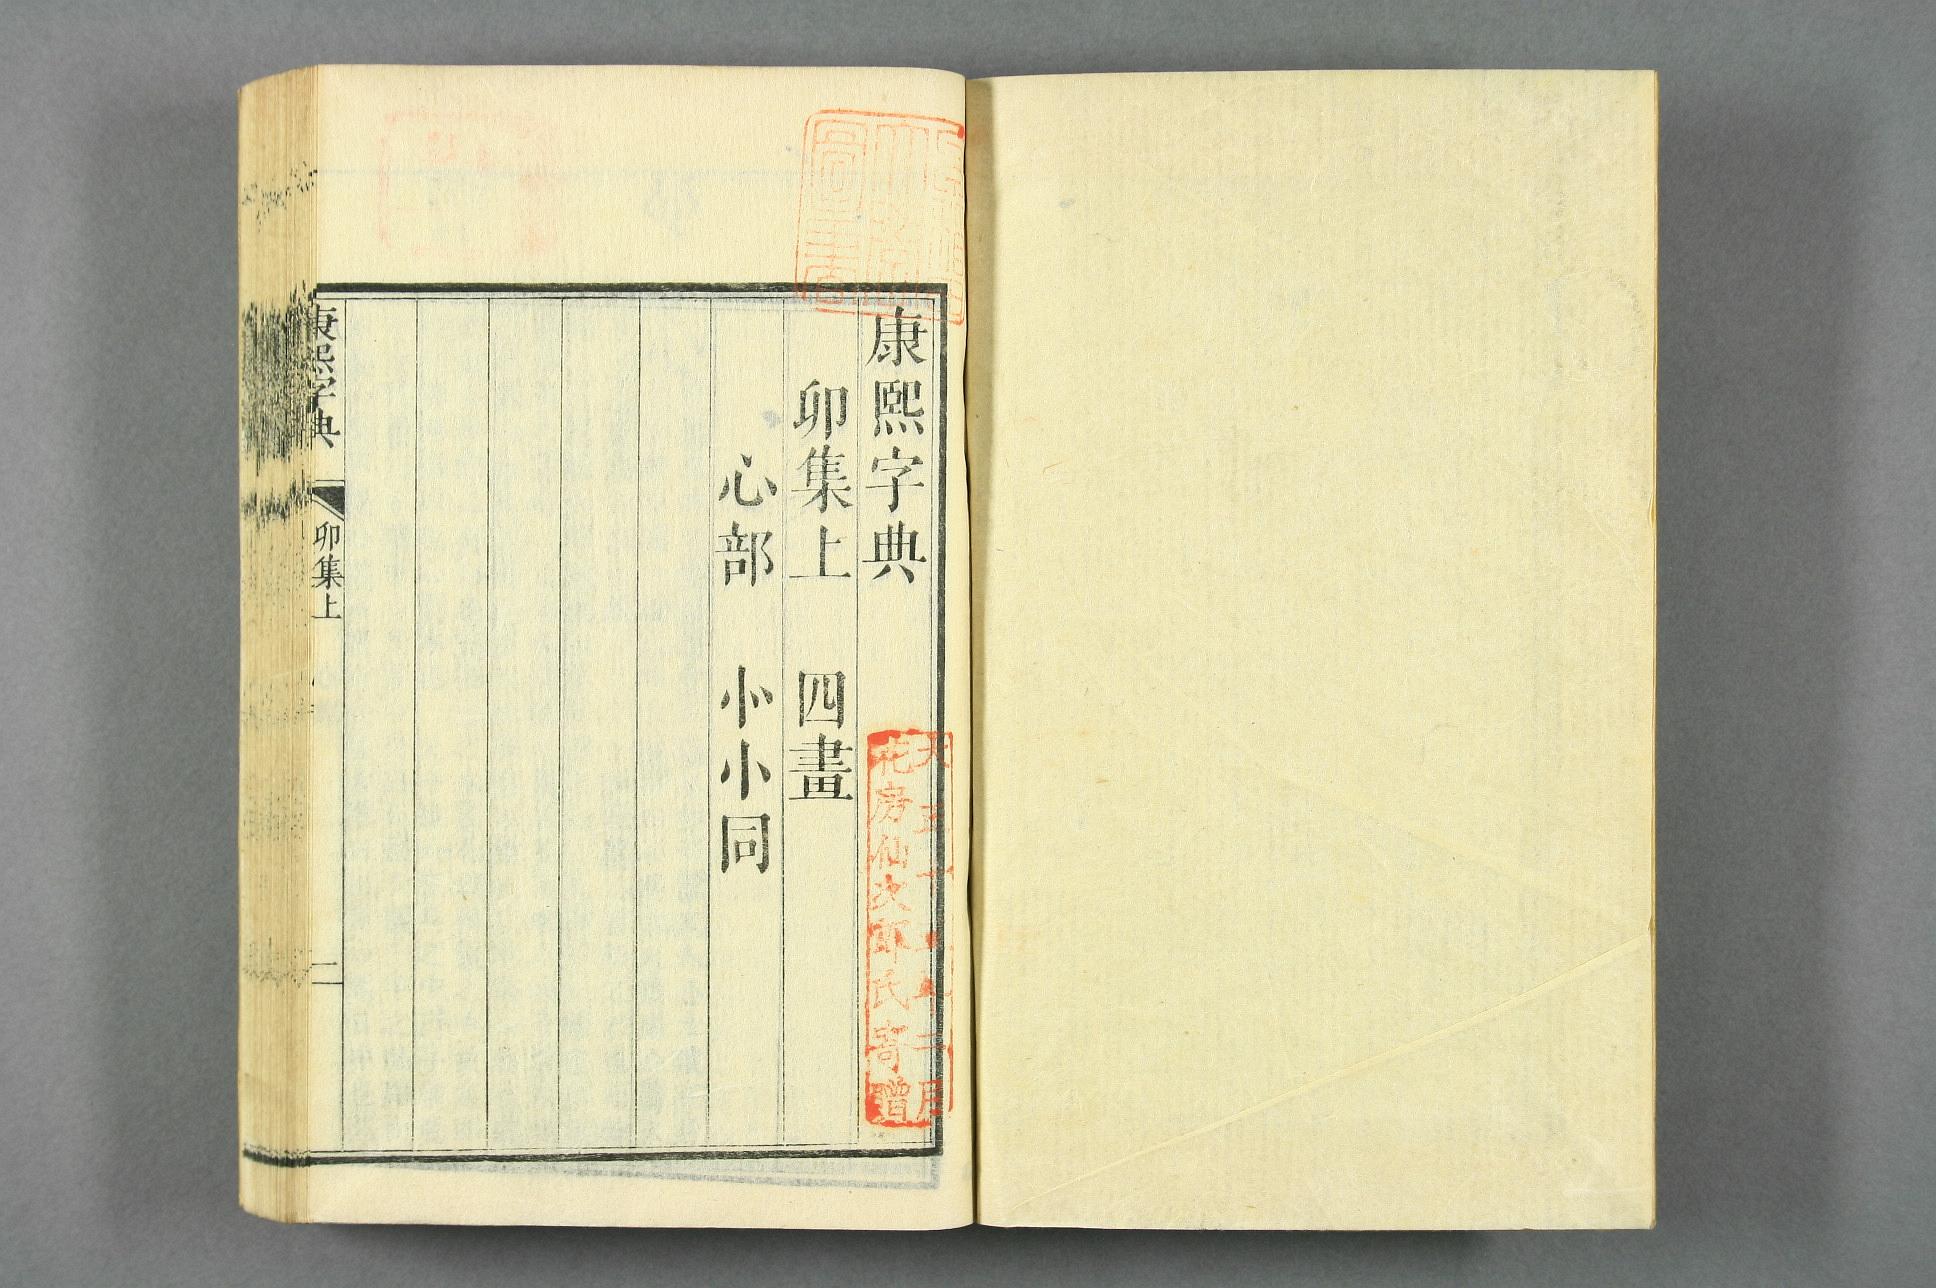 康熙字典
卯集上　四畫
心部　⺗小同
康熙字典
卯集上
二
花房仙次郎氏寄贈